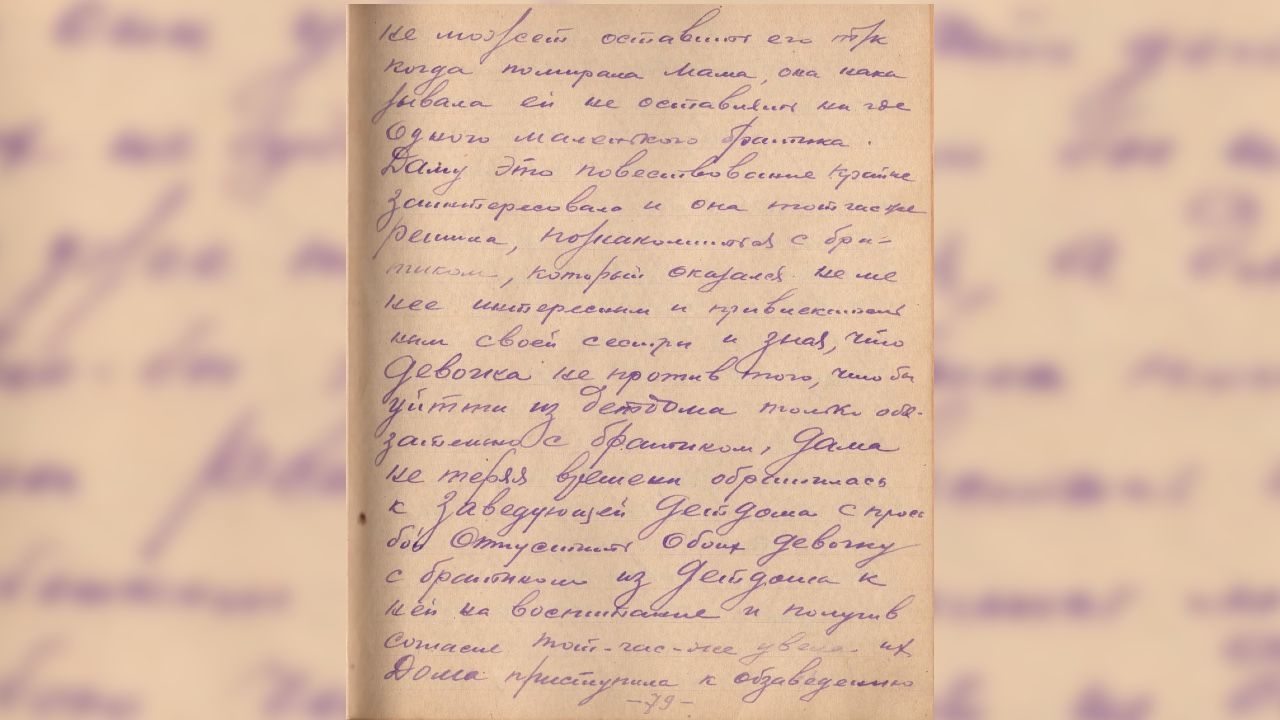 не может оставить его т/к
когда помирала мама, она нака
зывала ей не оставлять ни где
одного маленького братика.
Даму это повествование крайне
заинтересовало и она тотчасже
решила, познакомится с бра-
тиком, который оказался не ме
нее интересным и привлекатель
ным своей сестры и зная, что
девочка не против того, что бы
уйтти из детдома только обя-
зательно с братиком, дама
не теряя времени обратилась
к заведующей детдома с прось
бой отпустить обоих девочку
с братиком из детдома к
ней на воспитание и получив
согласие тот-час-же увела их
Дома приступила к обзаведению
-79-